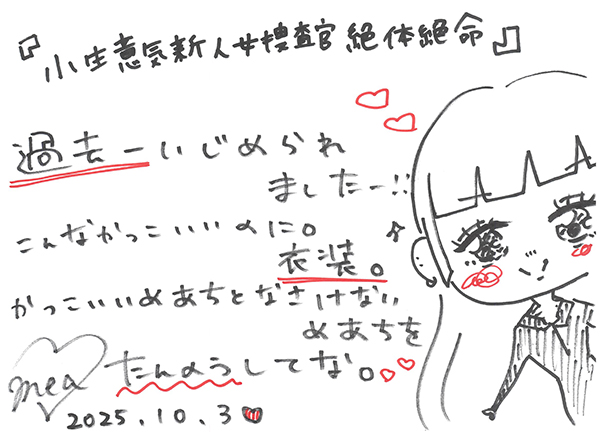 『小生意気新人女捜査官 絶体絶命』
過去一いじめられ
ましたー!!
こんなかっこいいのに。
衣装。
かっこいいめあちとなさけない
めあちを
たんのうしてな。
mea
2025.10.3